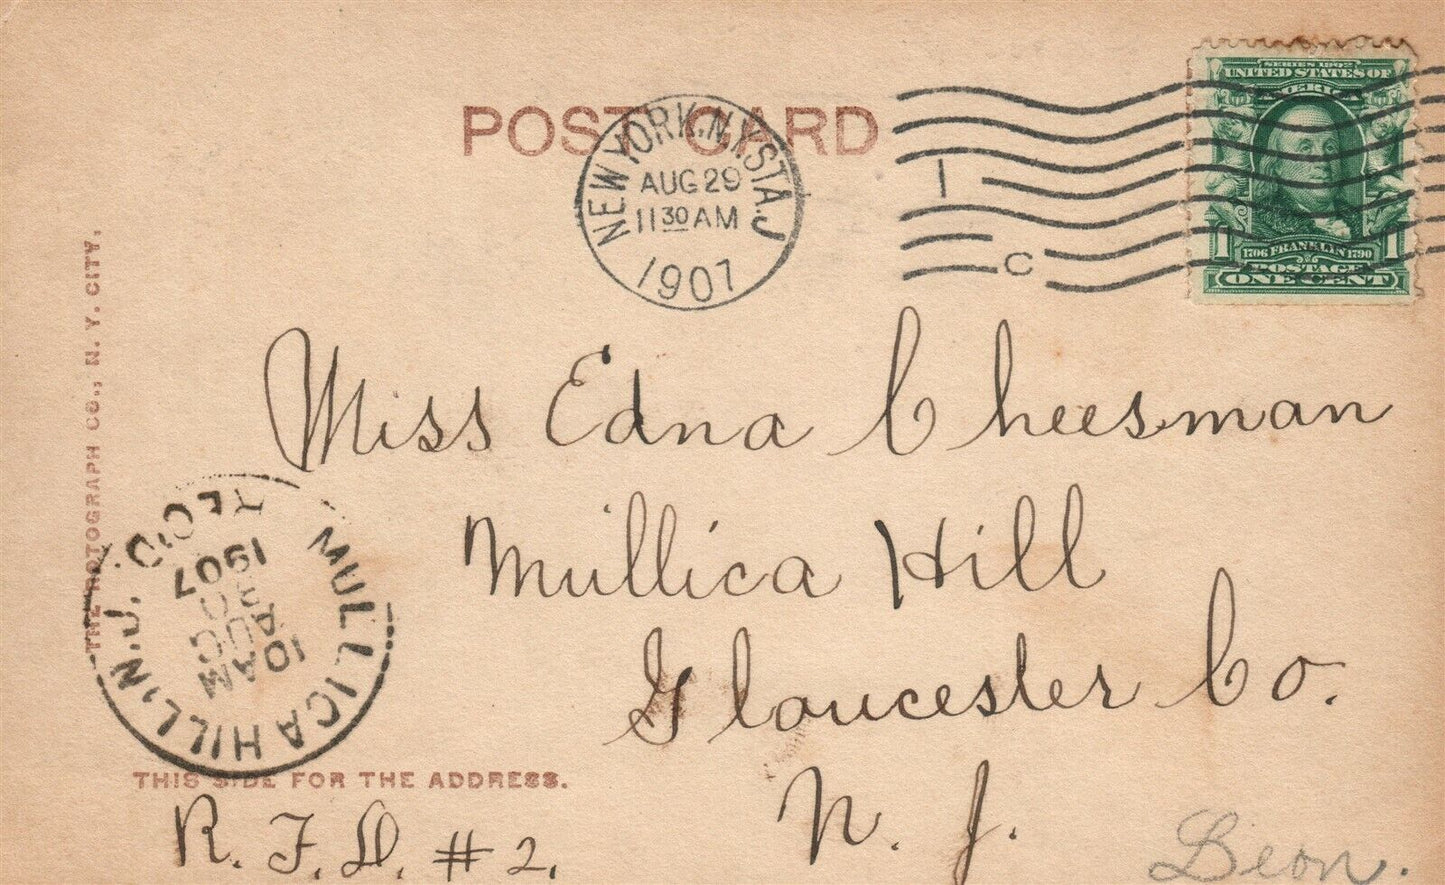 POST CARD
NEW YORK, N.Y. STA. J
AUG 29
11 30 AM
1907
1
C
SERIES 1902
UNITED STATES OF
AMERICA
1706 FRANKLIN 1790
POSTAGE
1 ONE CENT 1
THE ROTOGRAPH CO., N. Y. CITY.
Miss Edna Cheesman
Mullica Hill
Gloucester Co.
N. J.
R. F. D. #2.
MULLICA HILL, N.J.
REC'D
10 AM
AUG
30
1907
THIS SIDE FOR THE ADDRESS.